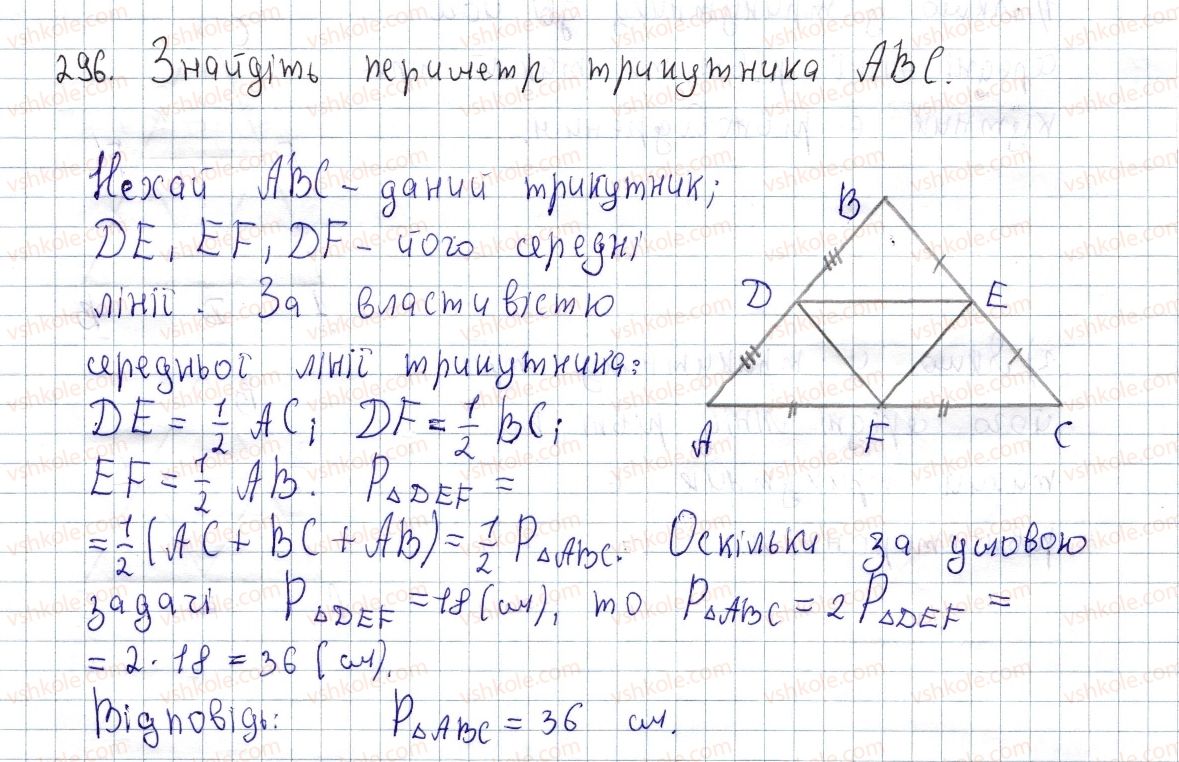 296. Знайдіть периметр трикутника ABC.
Нехай ABC - даний трикутник;
DE, EF, DF - його середні
лінії. За властивістю
середньої лінії трикутника:
DE = 1/2 AC; DF = 1/2 BC;
EF = 1/2 AB. P△DEF =
= 1/2 (AC + BC + AB) = 1/2 P△ABC. Оскільки за умовою
задачі P△DEF = 18 (см), то P△ABC = 2 P△DEF =
= 2 · 18 = 36 (см).
Відповідь: P△ABC = 36 см.
B
D E
A F C
vshkole.com